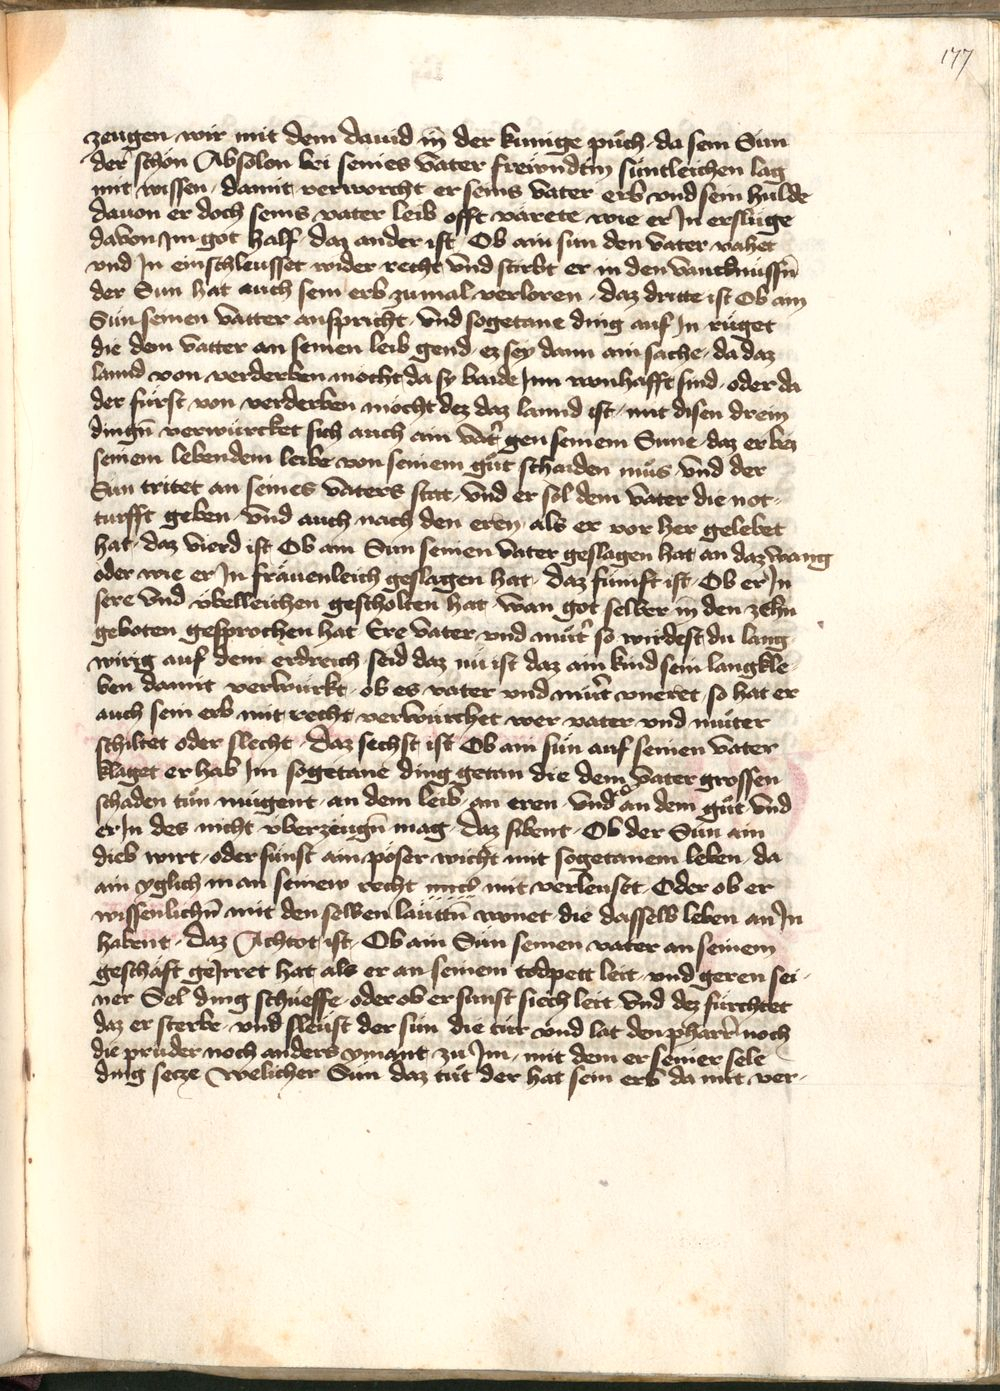 177
zeugen wir mit dem dauid in der kunige půch da sein Sun
der schön Absolon bei seines vater freiwndtin súntleichen lag
mit wissen damit verworcht er seins vater erb vnd sein hulde
dauon er doch seins vater leib offt varete wie er In erslüge
davon Im got half daz ander ist Ob ain sun den vater vahet
vnd In einschleusset wider recht vnd stirbt er in den vanchnüssn̄
der Sun hat auch sein erb zumal verloren daz dritte ist Ob ain
Sün seinen vatter anspricht vnd sogetane ding auf In rüget
die dem vatter an seinen leib gend ez sey dann ain sache da daz
lannd von verderben möcht da sy baide Inn wonhafft sind oder da
der fürst von verderben möcht dez daz lannd ist mit disen drein
dingn̄ verwürcket sich auch ain vat̾ gen seinem Sune daz er bey
seinem lebendem leibe von seinem gůt schaiden můs vnd der
Sun tritet an seines vaters stat vnd er sol dem vater die not-
turfft geben vnd auch nach den eren als er vor her gelebet
hat daz vierd ist Ob ain Sun seinen vater geslagen hat an daz wang
oder wie er In fräuenleich geslagen hat daz fünift ist Ob er In
sere vnd übelleichen gescholten hat wan got selber in den zehn
geboten gesprochen hat Ere vater vnd můt̾ so wirdest du lang
wirig auf dem erdreich seid daz nü ist daz ain kind sein langkle
ben damit verwürkt ob es vater vnd můt̾ vneret so hat er
auch sein erb mit recht verwürchet wer vater vnd můter
schiltet oder slecht Daz sechst ist Ob ain sün auf seinen vater
klaget er hab Im sogetane ding getan die dem vater grossen
schaden tůn mügent an dem leib an eren vnd an dem gůt vnd
er In des nicht überzeugn̄ mag Daz sibent Ob der Sün ain
dieb wirt oder sünst ain pöser wicht mit sogetanem leben da
ain yglich man seinew recht mit verleuset Oder ob er
wissenlichn̄ mit den selben läuttn̄ wonet die dasselb leben an In
habent Daz Achtot ist Ob ain Sün seinen vater an seinem
geschäft geIrret hat als er an seinem todpett leit vnd geren sei-
ner Sel ding schüeffe oder ob er sunst siech leit vnd dez fürchtet
daz er sterbe vnd sleüst der sün die tür vnd lat den pharr̾ noch
die prüder noch anders ymant zu Im mit dem er seiner sele
ding secze Welicher Sun daz tůt der hat sein erb damit ver-